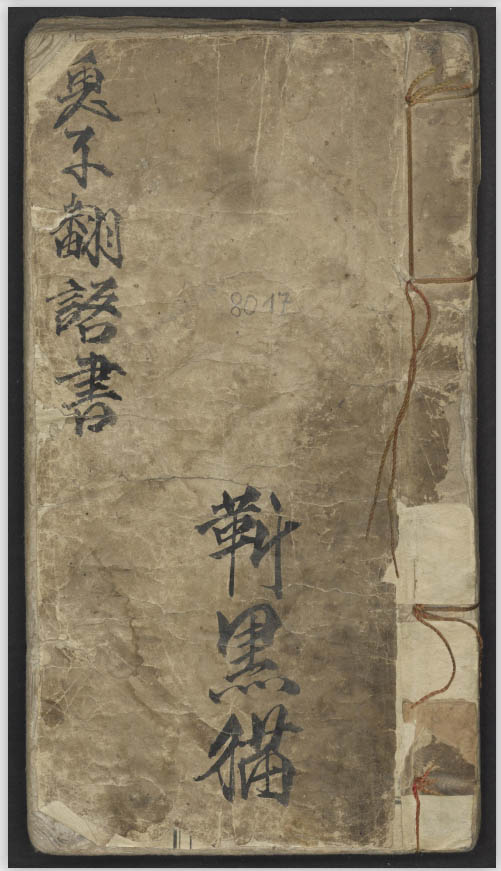 鬼子翻語書
8017
靳黑猫